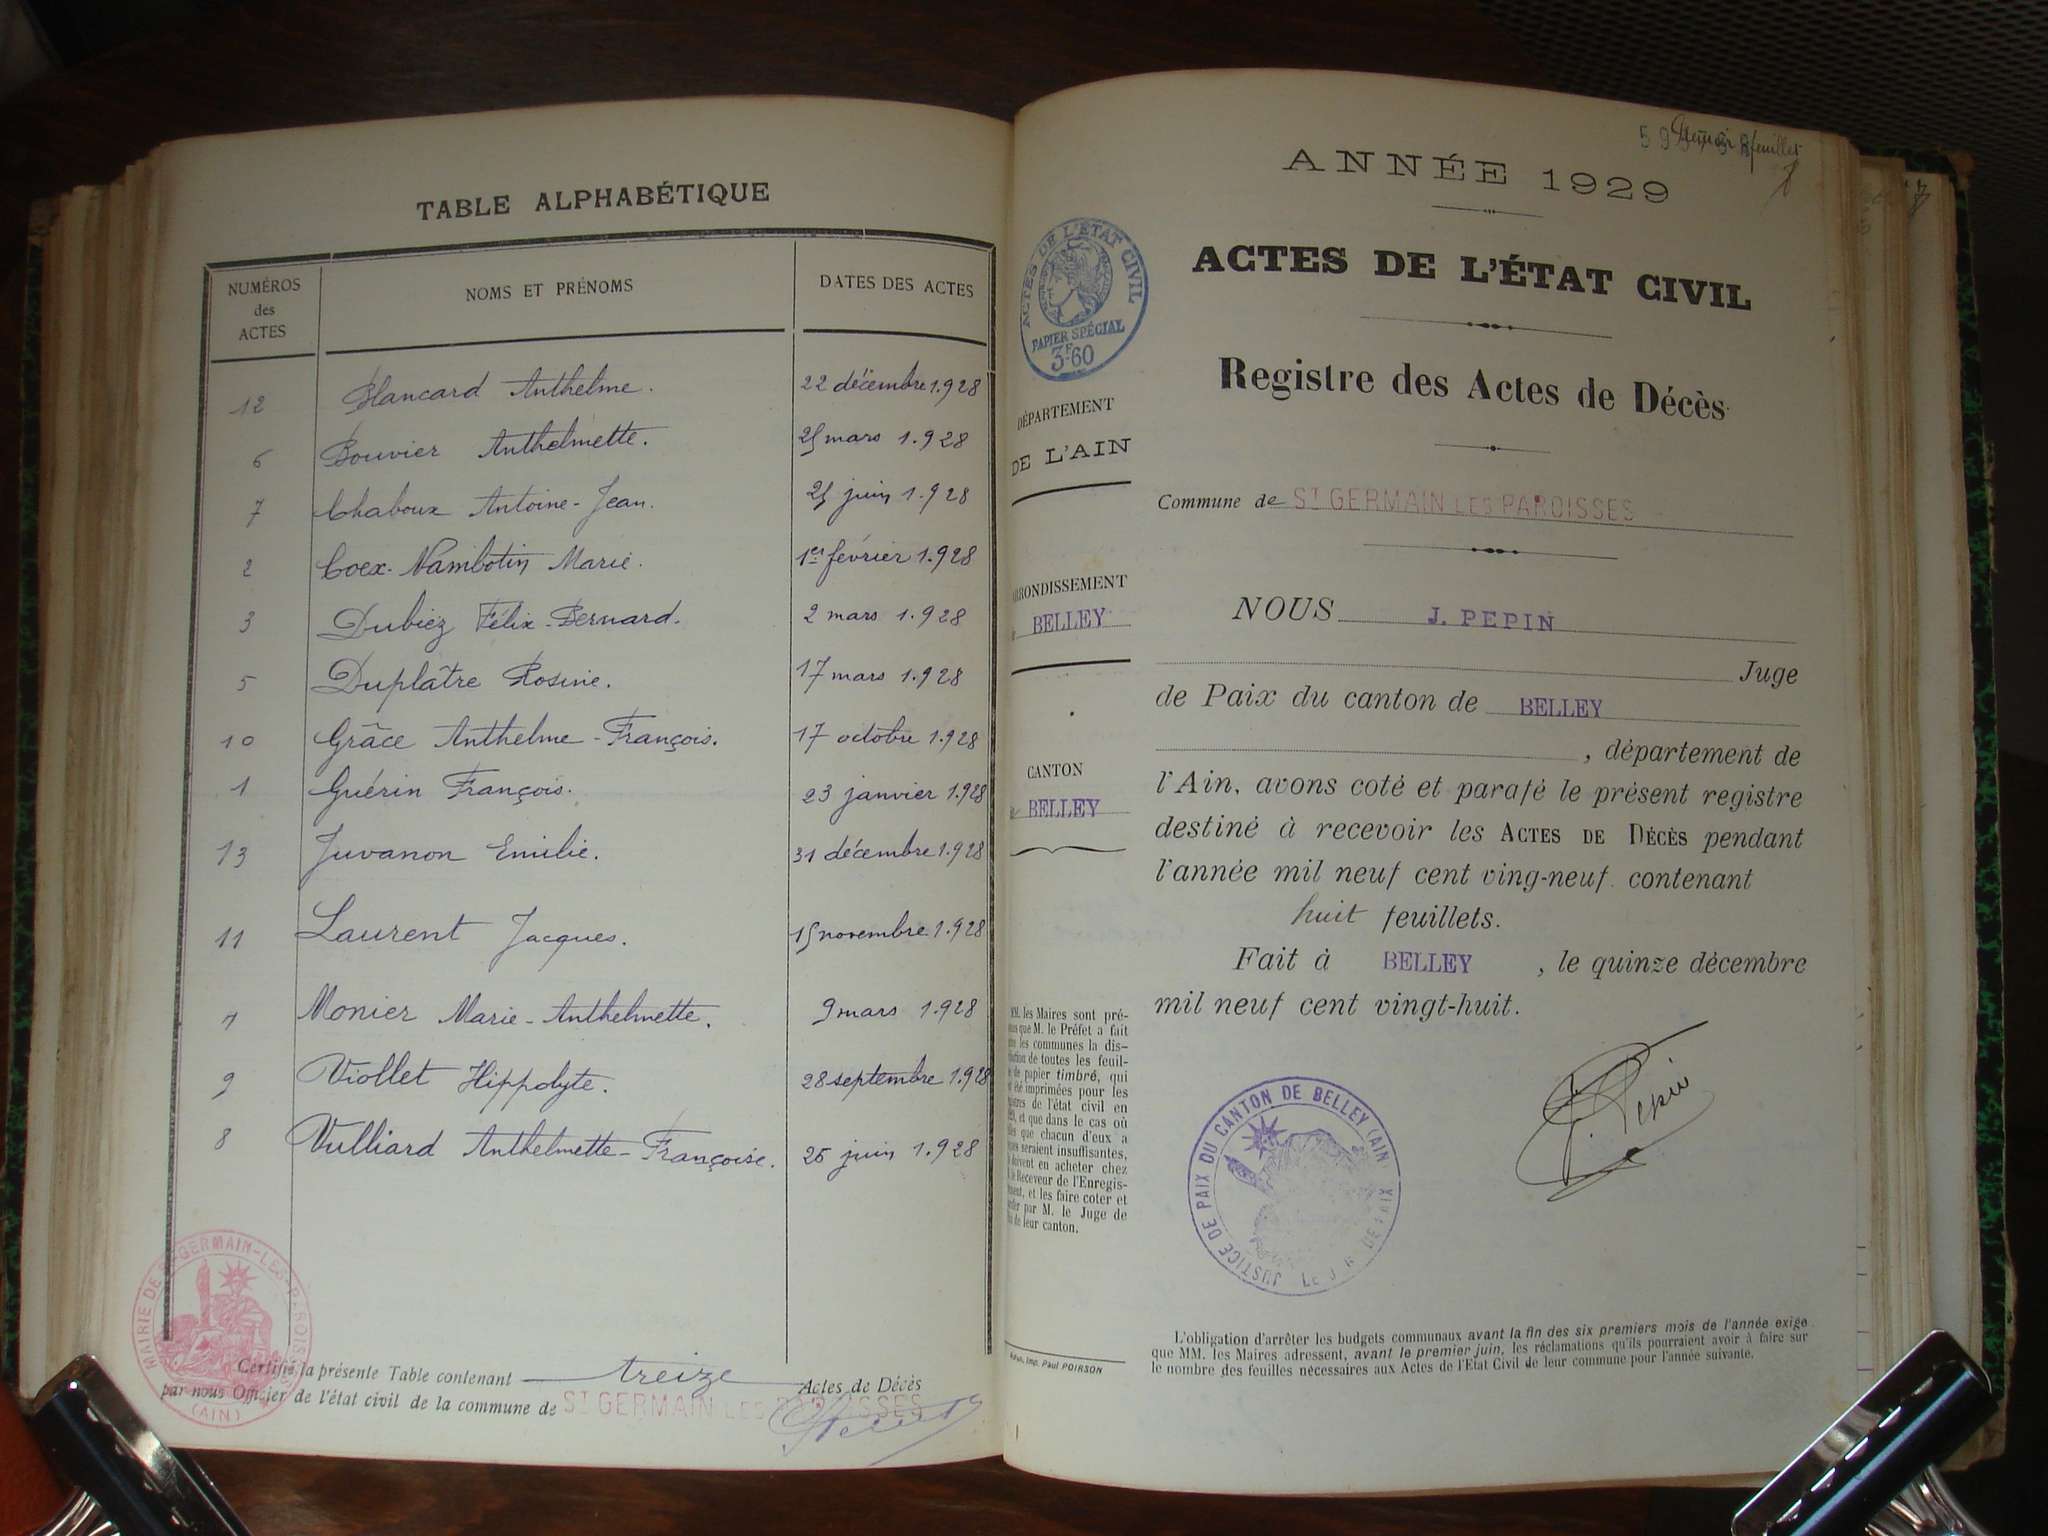 TABLE ALPHABÉTIQUE
NUMÉROS des ACTES NOMS ET PRÉNOMS DATES DES ACTES
12 Blancard Anthelme. 22 décembre 1.928
6 Bouvier Anthelmette. 25 mars 1.928
7 Chaboux Antoine-Jean. 25 juin 1.928
2 Coex-Nambotin Marie. 1er février 1.928
3 Dubiez Félix-Bernard. 2 mars 1.928
5 Duplâtre Rosine. 17 mars 1.928
10 Grâce Anthelme-François. 17 octobre 1.928
1 Guérin François. 23 janvier 1.928
13 Juvanon Emilie. 31 décembre 1.928
11 Laurent Jacques. 15 novembre 1.928
Monier Marie-Anthelmette. 9 mars 1.928
9 Viollet Hippolyte. 28 septembre 1.928
8 Vulliard Anthelmette-Françoise. 26 juin 1.928
MAIRIE DE ST GERMAIN-LES-PAROISSES (AIN)
Certifié la présente Table contenant treize Actes de Décès
par nous Officier de l'état civil de la commune de ST GERMAIN LES PAROISSES
feuillet
ANNÉE 1929
ACTES DE L'ÉTAT CIVIL
PAPIER SPÉCIAL
3F60
ACTES DE L'ÉTAT CIVIL
Registre des Actes de Décès
DÉPARTEMENT
DE L'AIN
Commune de ST GERMAIN LES PAROISSES
ARRONDISSEMENT
BELLEY
CANTON
BELLEY
NOUS J. PEPIN
Juge
de Paix du canton de BELLEY
, département de
l'Ain, avons coté et parafé le présent registre
destiné à recevoir les ACTES DE DÉCÈS pendant
l'année mil neuf cent ving-neuf contenant
huit feuillets.
Fait à BELLEY , le quinze décembre
mil neuf cent vingt-huit.
J. Pepin
JUSTICE DE PAIX DU CANTON DE BELLEY (AIN
MM. les Maires sont pré-
que M. le Préfet a fait
les communes la dis-
de toutes les feuil-
de papier timbré, qui
été imprimées pour les
de l'état civil en
et que dans le cas où
que chacun d'eux a
seraient insuffisantes,
en acheter chez
Receveur de l'Enregis-
et les faire coter et
par M. le Juge de
de leur canton.
Imp. Paul POIRSON
L'obligation d'arrêter les budgets communaux avant la fin des six premiers mois de l'année exige
que MM. les Maires adressent, avant le premier juin, les réclamations qu'ils pourraient avoir à faire sur
le nombre des feuilles nécessaires aux Actes de l'Etat Civil de leur commune pour l'année suivante.